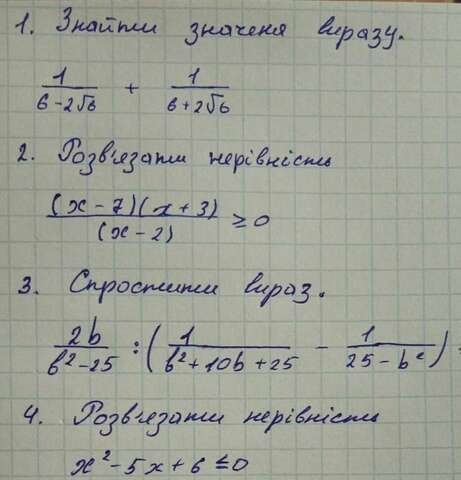 1. Знайти значеня виразу.
1/(6-2√6) + 1/(6+2√6)
2. Розв'язати нерівність
(x-7)(x+3)/(x-2) ≥ 0
3. Спростити вираз.
2b/(b²-25) : (1/(b²+10b+25) - 1/(25-b²))
4. Розв'язати нерівність
x²-5x+6 ≤ 0